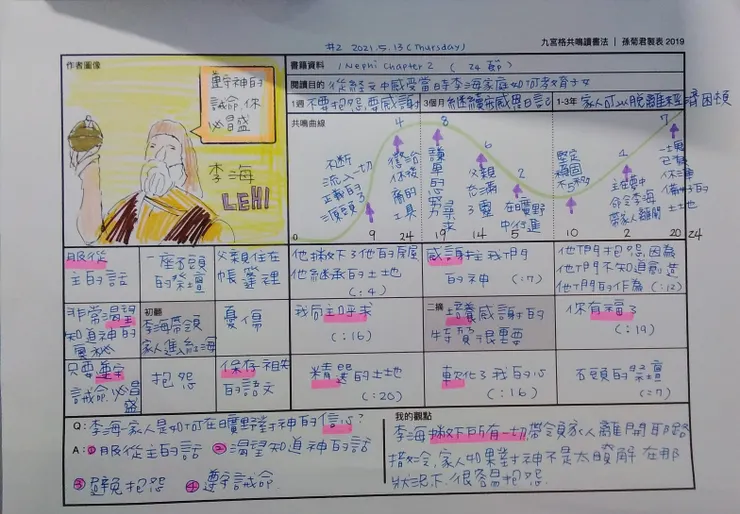 #2 2021.5.13 (Thursday)
九宮格共鳴讀書法 | 孫菊君製表 2019
作者圖像
書籍資料
1 Nephi Chapter 2 (24節)
閱讀目的
從經文中感受當時李海家庭如何教育子女
1週
不要抱怨,要感謝
3個月
繼續寫感恩日記
1-3年
家人可以脫離經濟困頓
遵守神的
誡命,你
必昌盛
李海
LEHI
共鳴曲線
不斷
流入一切
正義的
源頭
9
4
24
8
謙卑的努力尋求
19
6
父親
充滿
了靈
14
2
在曠野
中行進
5
堅定
穩固
不移
10
1
主在夢中
命令李海
帶家人離開
2
7
土地
20
24
0
服從
主的話
一座石頭
的祭壇
父親住在
帳篷裡
他撇下了他的房屋
他繼承的土地
(:4)
感謝主我們
的神 (:7)
他們抱怨,因為
他們不知道創造
他們的作為 (:12)
非常渴望
知道神的
奧秘
初聽
李海帶領
家人進入紅海
憂傷
我向主呼求
(:16)
二摘
培養感謝的
特質很重要
你有福了
(:19)
只要遵守
誡命.必昌
盛
抱怨
保存祖先
的語文
精選的土地
(:20)
軟化了我的心
(:16)
石頭的祭壇
(:7)
Q:李海家人是如何在曠野對神的信心?
A:①服從主的話 ②渴望知道神的話
③避免抱怨 ④遵守誡命.
我的觀點
李海撇下所有一切,帶領家人離開耶路
撒冷,家人如果對神不是太瞭解,在那
狀況下,很容易抱怨.